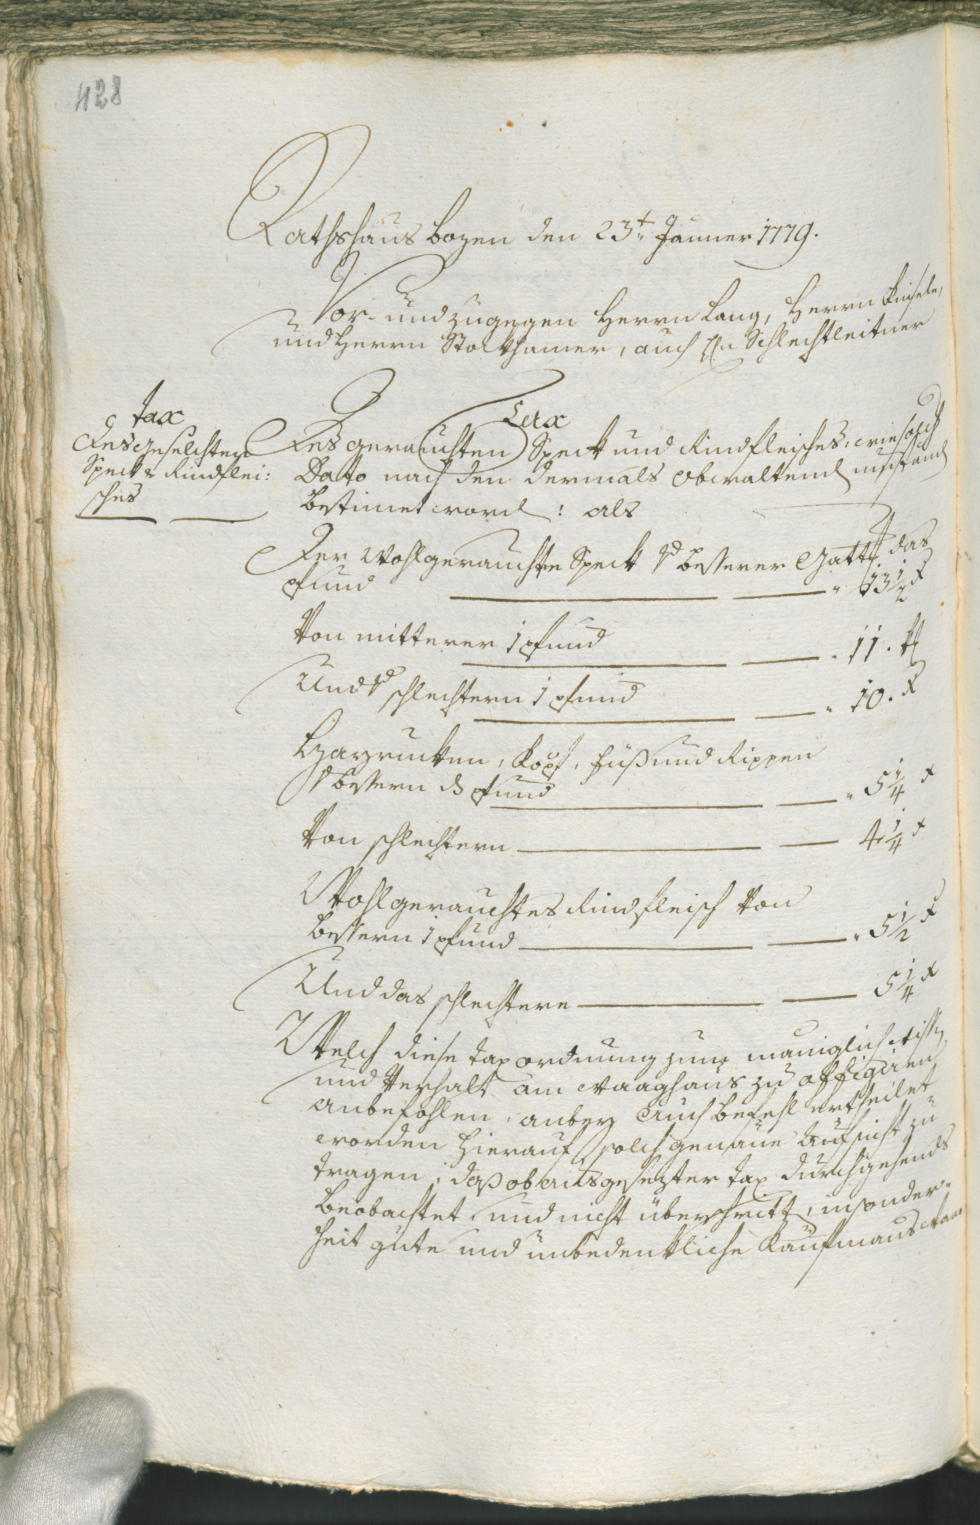 428
Rathshaus Bozen den 23t. Jänner 1779.
Vor- und zugegen Herrn Lang, Herrn
und Herrn Stolthamer, auch Hn Schlechtleitner
tax
des geselchten
Speck & Rindflei:
sches
Tax
Des gerauchten Speck und Rindfleisches, wie solch
Dato nach den dermals obwaltend umständ
bestimet word: als
Der wohlgerauchte Speck besserer Gatt das
pfund " 13 1/2 x
Von mitterer 1 pfund " 11. x
Und schlechtern 1 pfund " 10. x
Hazrucken, Kopf, füß und Rippen
bessern pfund " 5 1/4 x
Von schlechtern 4 1/4 x
Wohlgerauchtes Rindfleisch von
bessern 1 pfund " 5 1/2 x
Und das schlechtere 5 1/4 x
Welch diese taxordnung zum maniglich wissen
und verhalt am waaghaus zu affigiren
anbefohlen, anbey auch befehl ertheilet
worden hierauf solch genaue aufsicht zu
tragen, daß ob angesezter tax durchgehends
beobachtet und nicht überschritt, insonder-
heit gute und unbedenkliche Kaufmans